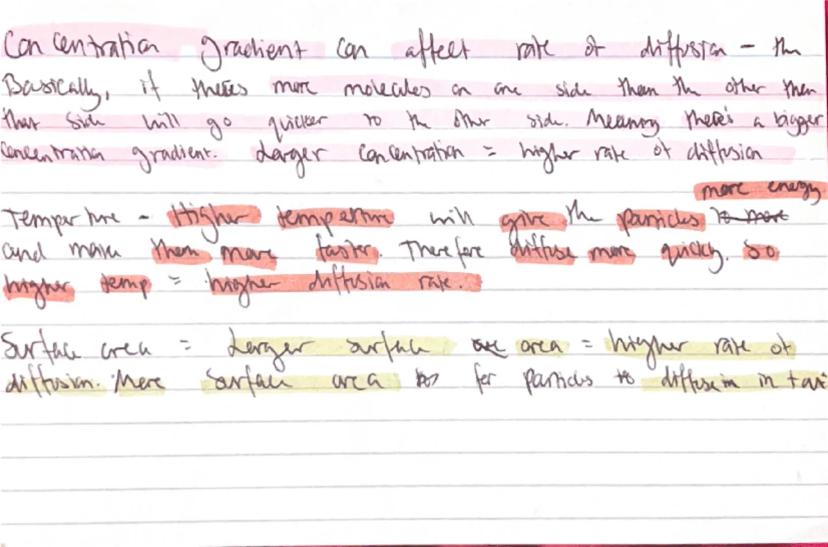 Concentration gradient can affect rate of diffusion - the
Basically, if there's more molecules on one side than the other then
that side will go quicker to the other side. Meaning there's a bigger
concentration gradient. Larger concentration = higher rate of diffusion
more energy
Temperture - Higher temperture will give the particles to move
and make them move faster. Therefore diffuse more quickly. So
higher temp = higher diffusion rate.
Surface area = Larger surface are area = higher rate of
diffusion. More surface area for particles to diffuse in